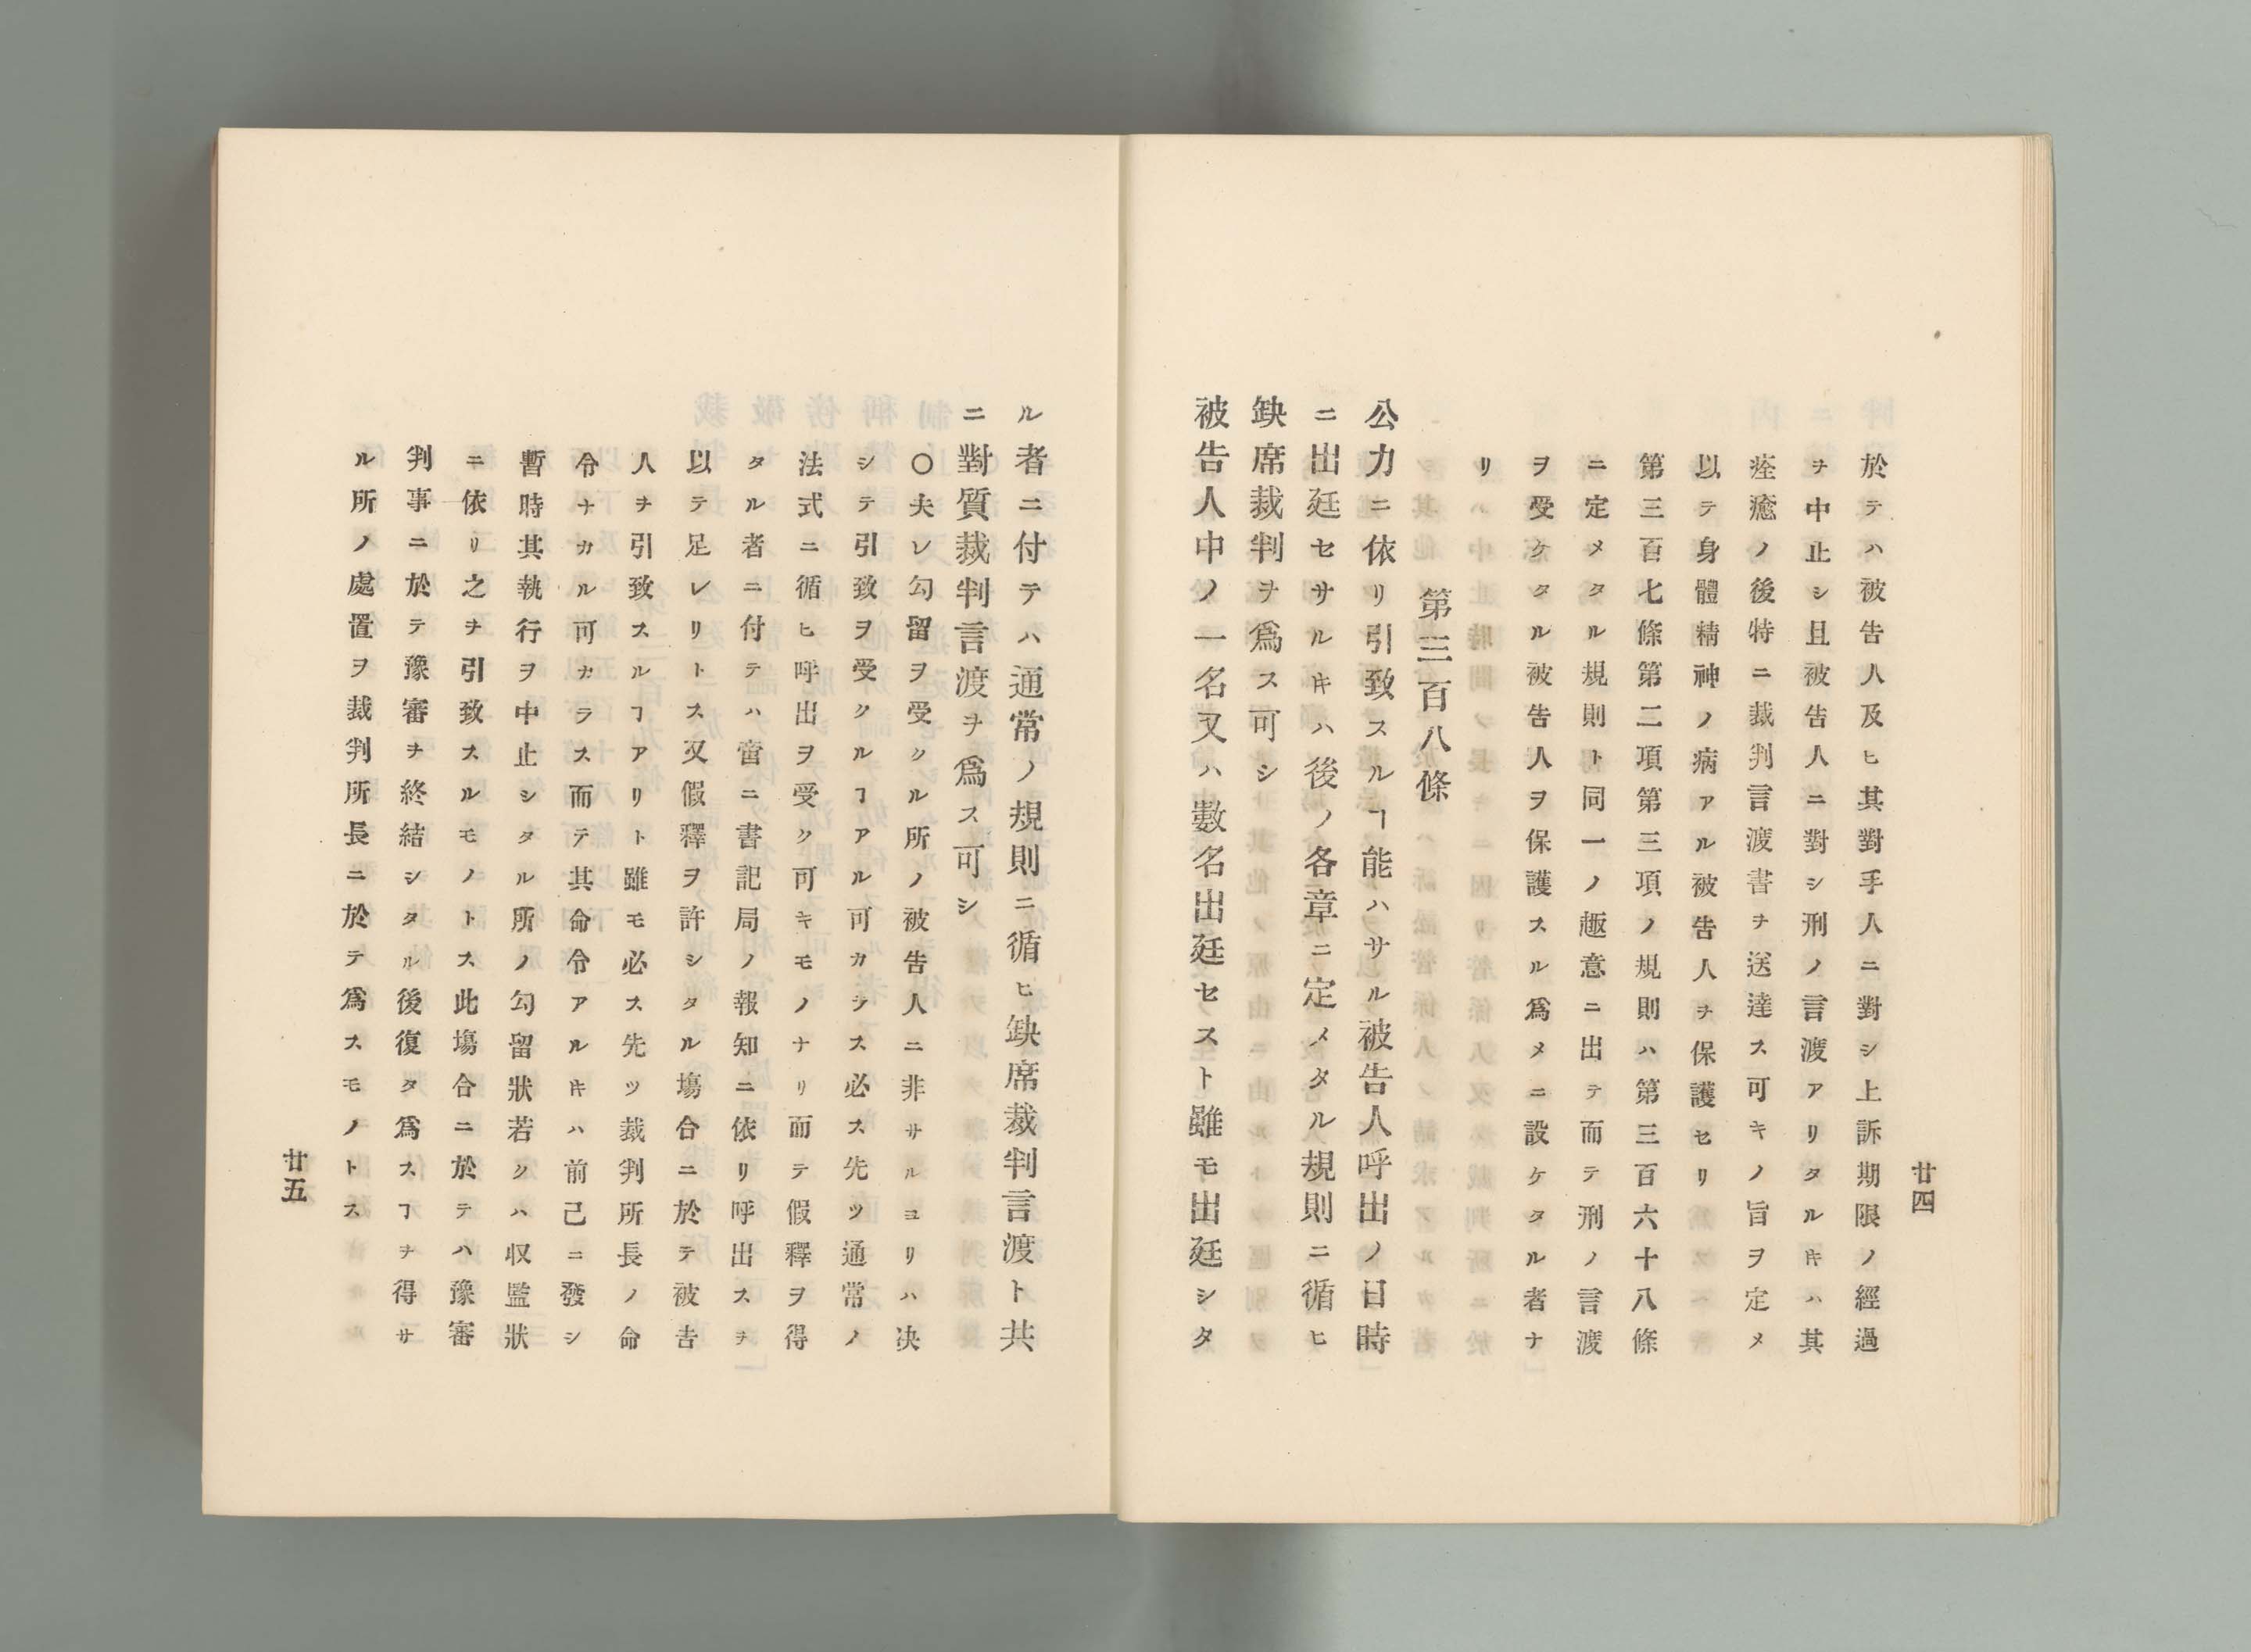 廿四
於テハ被告人及ヒ其對手人ニ對シ上訴期限ノ經過
ヲ中止シ且被告人ニ對シ刑ノ言渡アリタルキハ其
痊癒ノ後特ニ裁判言渡書ヲ送達ス可キノ旨ヲ定メ
以テ身體精神ノ病アル被告人ヲ保護セリ
第三百七條第二項第三項ノ規則ハ第三百六十八條
ニ定メタル規則ト同一ノ趣意ニ出テ而テ刑ノ言渡
ヲ受ケタル被告人ヲ保護スル爲メニ設ケタル者ナ
リ
第三百八條
公力ニ依リ引致スルヿ能ハサル被告人呼出ノ日時
ニ出廷セサルキハ後ノ各章ニ定メタル規則ニ循ヒ
缺席裁判ヲ爲ス可シ
被告人中ノ一名又ハ數名出廷セスト雖モ出廷シタ
ル者ニ付テハ通常ノ規則ニ循ヒ缺席裁判言渡ト共
ニ對質裁判言渡ヲ爲ス可シ
〇夫レ勾留ヲ受クル所ノ被告人ニ非サルヨリハ决
シテ引致ヲ受クルヿアル可カラス必ス先ツ通常ノ
法式ニ循ヒ呼出ヲ受ク可キモノナリ而テ假釋ヲ得
タル者ニ付テハ當ニ書記局ノ報知ニ依リ呼出スヲ
以テ足レリトス又假釋ヲ許シタル塲合ニ於テ被告
人ヲ引致スルヿアリト雖モ必ス先ツ裁判所長ノ命
令ナカル可カラス而テ其命令アルキハ前己ニ發シ
暫時其執行ヲ中止シタル所ノ勾留狀若クハ収監狀
ニ依リ之ヲ引致スルモノトス此塲合ニ於テハ豫審
判事ニ於テ豫審ヲ終結シタル後復タ爲スヿヲ得サ
ル所ノ處置ヲ裁判所長ニ於テ爲スモノトス
廿五